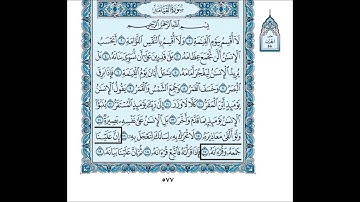 سُورَةُ القِيَامَةِ
بِسْمِ اللَّهِ الرَّحْمَٰنِ الرَّحِيمِ
لَا أُقْسِمُ بِيَوْمِ الْقِيَٰمَةِ ١ وَلَا أُقْسِمُ بِالنَّفْسِ اللَّوَّامَةِ ٢ أَيَحْسَبُ
الْإِنسَٰنُ أَلَّن نَّجْمَعَ عِظَامَهُ ٣ بَلَىٰ قَٰدِرِينَ عَلَىٰ أَن نُّسَوِّيَ بَنَانَهُ ٤ بَلْ
يُرِيدُ الْإِنسَٰنُ لِيَفْجُرَ أَمَامَهُ ٥ يَسْـَٔلُ أَيَّانَ يَوْمُ الْقِيَٰمَةِ ٦ فَإِذَا بَرِقَ
الْبَصَرُ ٧ وَخَسَفَ الْقَمَرُ ٨ وَجُمِعَ الشَّمْسُ وَالْقَمَرُ ٩ يَقُولُ الْإِنسَٰنُ
يَوْمَئِذٍ أَيْنَ الْمَفَرُّ ١٠ كَلَّا لَا وَزَرَ ١١ إِلَىٰ رَبِّكَ يَوْمَئِذٍ الْمُسْتَقَرُّ ١٢ يُنَبَّؤُا
الْإِنسَٰنُ يَوْمَئِذٍ بِمَا قَدَّمَ وَأَخَّرَ ١٣ بَلِ الْإِنسَٰنُ عَلَىٰ نَفْسِهِ بَصِيرَةٌ ١٤
وَلَوْ أَلْقَىٰ مَعَاذِيرَهُ ١٥ لَا تُحَرِّكْ بِهِ لِسَانَكَ لِتَعْجَلَ بِهِ ١٦ إِنَّ عَلَيْنَا
جَمْعَهُ وَقُرْءَانَهُ ١٧ فَإِذَا قَرَأْنَٰهُ فَاتَّبِعْ قُرْءَانَهُ ١٨ ثُمَّ إِنَّ عَلَيْنَا بَيَانَهُ ١٩
٥٧٧